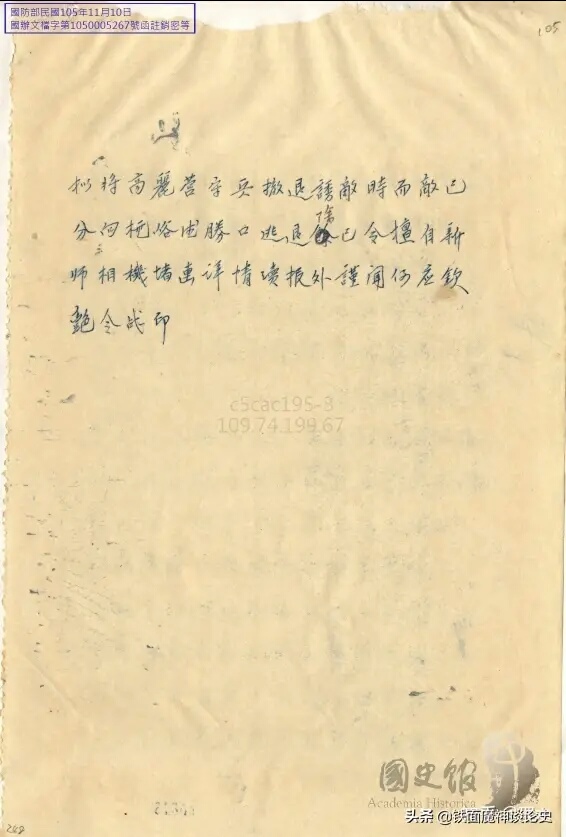 國防部民國105年11月10日
國辦文檔字第1050005267號函註銷密等
105
拟将高麗营守兵撤退誘敵時而敵已
分向桃峪 勝口逃退除已令 自新
师相機堵击详情續报外謹闻何应欽
艷令战印
c5cac195-3
109.74.199.67
國史館
Academia Historica
头条 @铁面魔神谈论史